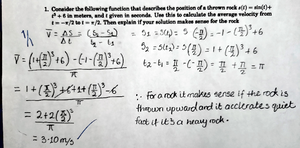 1. Consider the following function that describes the position of a thrown rock s(t) = sin(t)+
t³ + 6 in meters, and t given in seconds. Use this to calculate the average velocity from
t = −π/2 to t = π/2. Then explain if your solution makes sense for the rock
V̄ = ΔS/Δt = (S₂ − S₁)/(t₂ − t₁)
S₁ = S(t₁) = S(−π/2) = −1 − (π/2)³ + 6
S₂ = S(t₂) = S(π/2) = 1 + (π/2)³ + 6
t₂ − t₁ = π/2 − (−π/2) = π/2 + π/2 = π
V̄ = (1 + (π/2)³ + 6) − (−1 − (π/2)³ + 6) / π
= 1 + (π/2)³ + 6 + 1 + (π/2)³ − 6 / π
= 2 + 2(π/2)³ / π
= 3.10 m/s
∴ For a rock it makes sense if the rock is
thrown upward and it acclerates quiet
fast if it's a heavy rock.